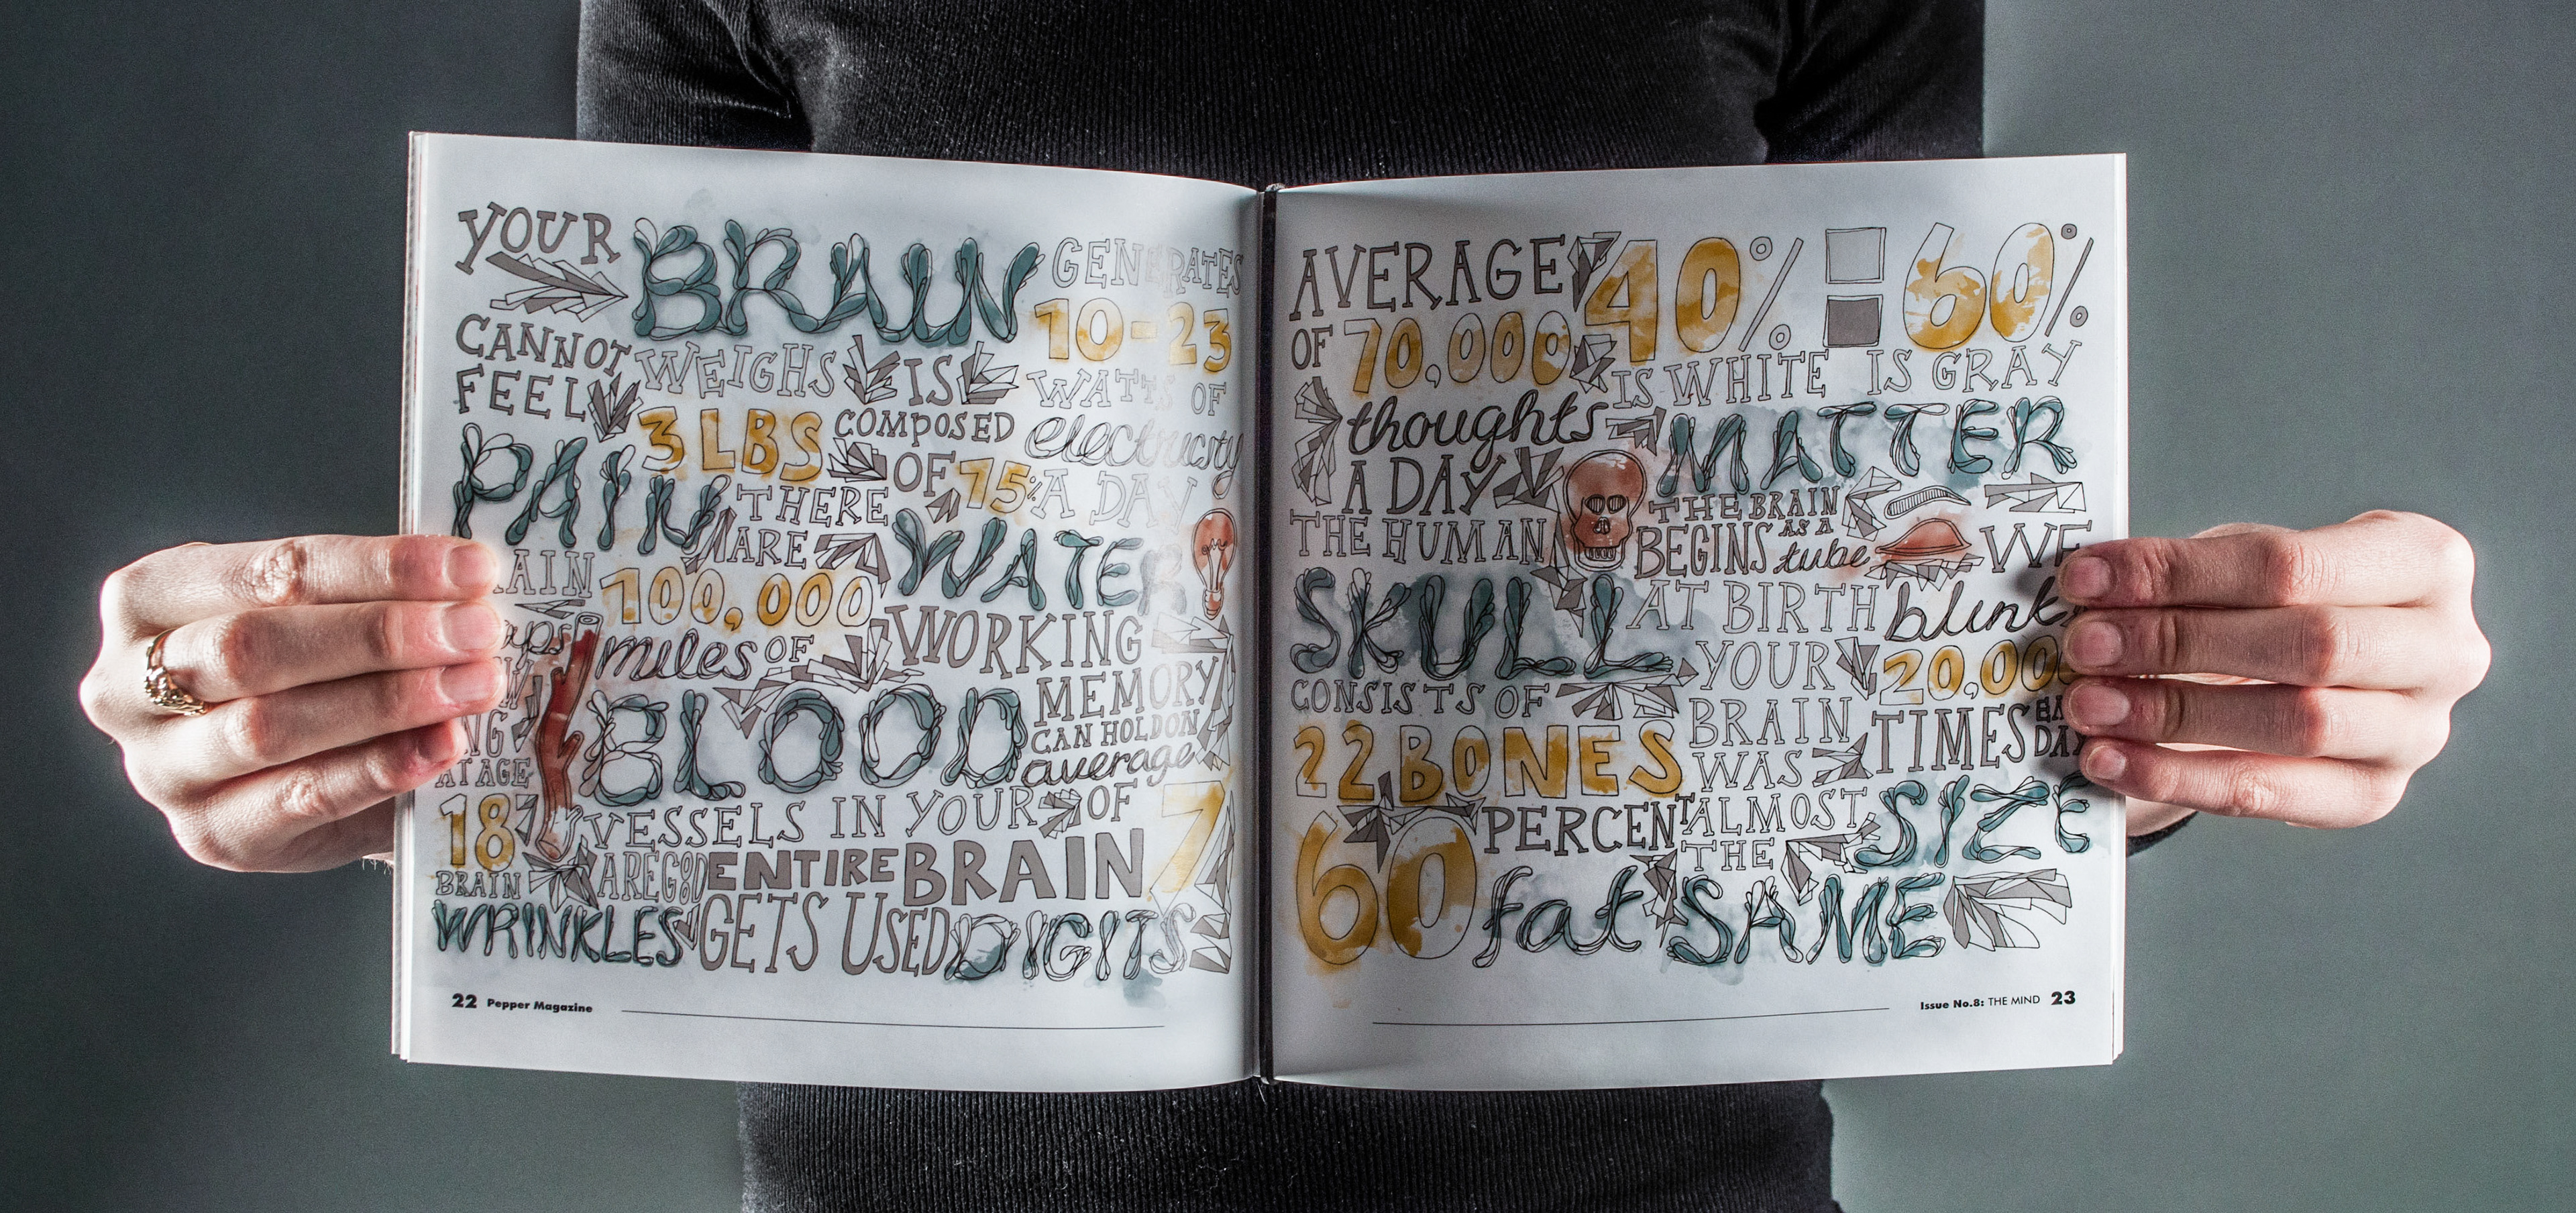 YOUR BRAIN
CANNOT
FEEL
PAIN
AIN
AT AGE
18
BRAIN
WRINKLES
WEIGHS
3 LBS
THERE
ARE
100,000
miles OF
BLOOD
VESSELS IN YOUR
ARE GOOD
ENTIRE BRAIN
GETS USED
IS
COMPOSED
OF 75%
WATER
GENERATES
10-23
WATTS OF
electricity
A DAY
WORKING
MEMORY
CAN HOLD ON
average
OF
7
DIGITS
22 Pepper Magazine
AVERAGE
OF 70,000
thoughts
A DAY
THE HUMAN
SKULL
CONSISTS OF
22 BONES
60 PERCENT
fat
40%
IS WHITE
60%
IS GRAY
MATTER
THE BRAIN
BEGINS AS A
tube
AT BIRTH
YOUR
BRAIN
WAS
ALMOST
THE
SAME
SIZE
WE
blink
20,00
TIMES EA
DAY
Issue No.8: THE MIND 23